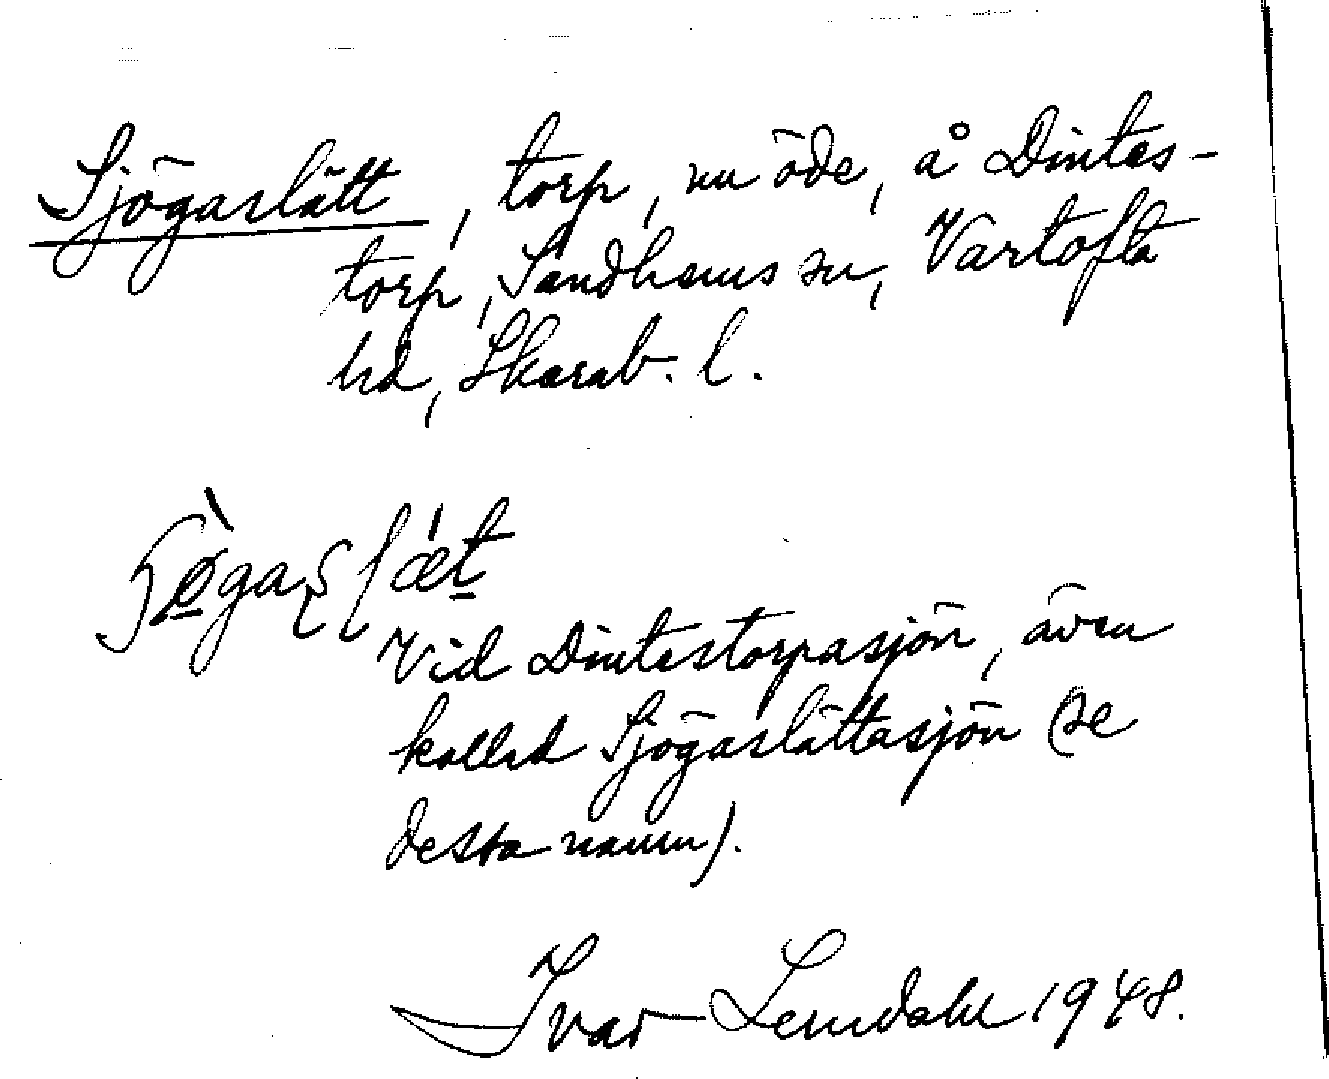 Sjögaslätt, torp, nu öde, å Dintes-
torp, Sandhems sn, Vartofta
hd, Skarab. l.
Vid Dintestorpasjön, även
kallad Sjögaslättasjön (se
detta namn).
Ivar Lundahl 1948.